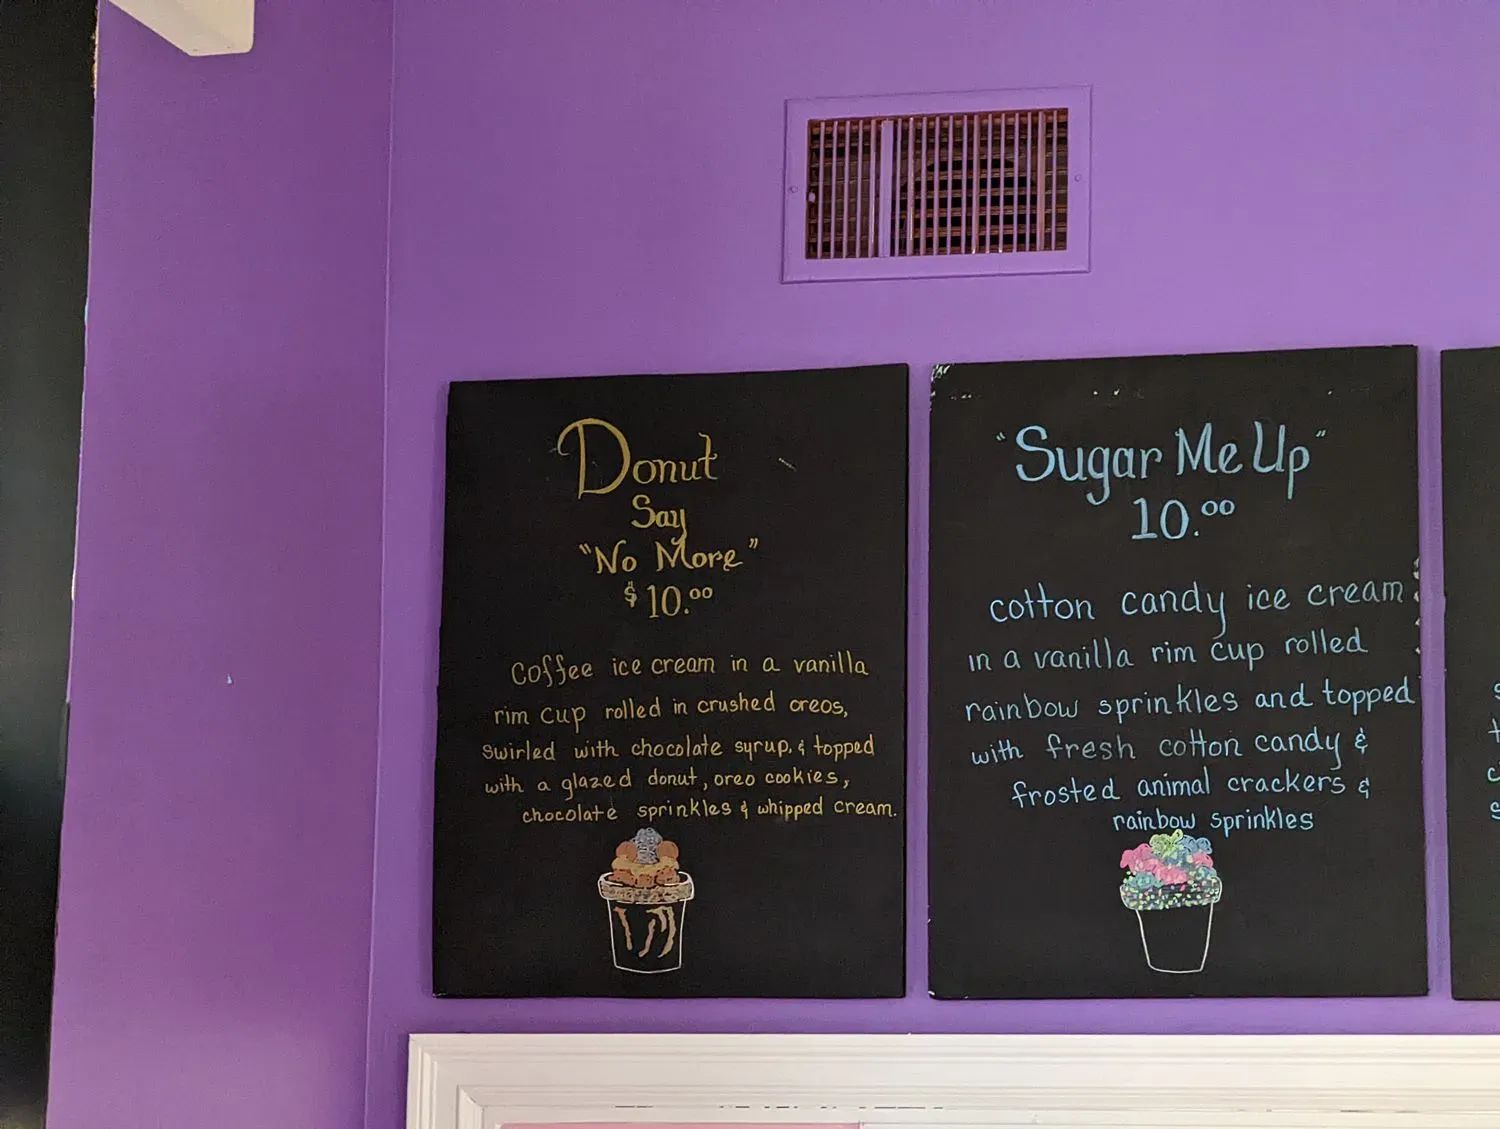 Donut
Say
"No More"
$10.00
Coffee ice cream in a vanilla
rim cup rolled in crushed oreos,
swirled with chocolate syrup, & topped
with a glazed donut, oreo cookies,
chocolate sprinkles & whipped cream.
"Sugar Me Up"
10.00
cotton candy ice cream
in a vanilla rim cup rolled
rainbow sprinkles and topped
with fresh cotton candy &
frosted animal crackers &
rainbow sprinkles